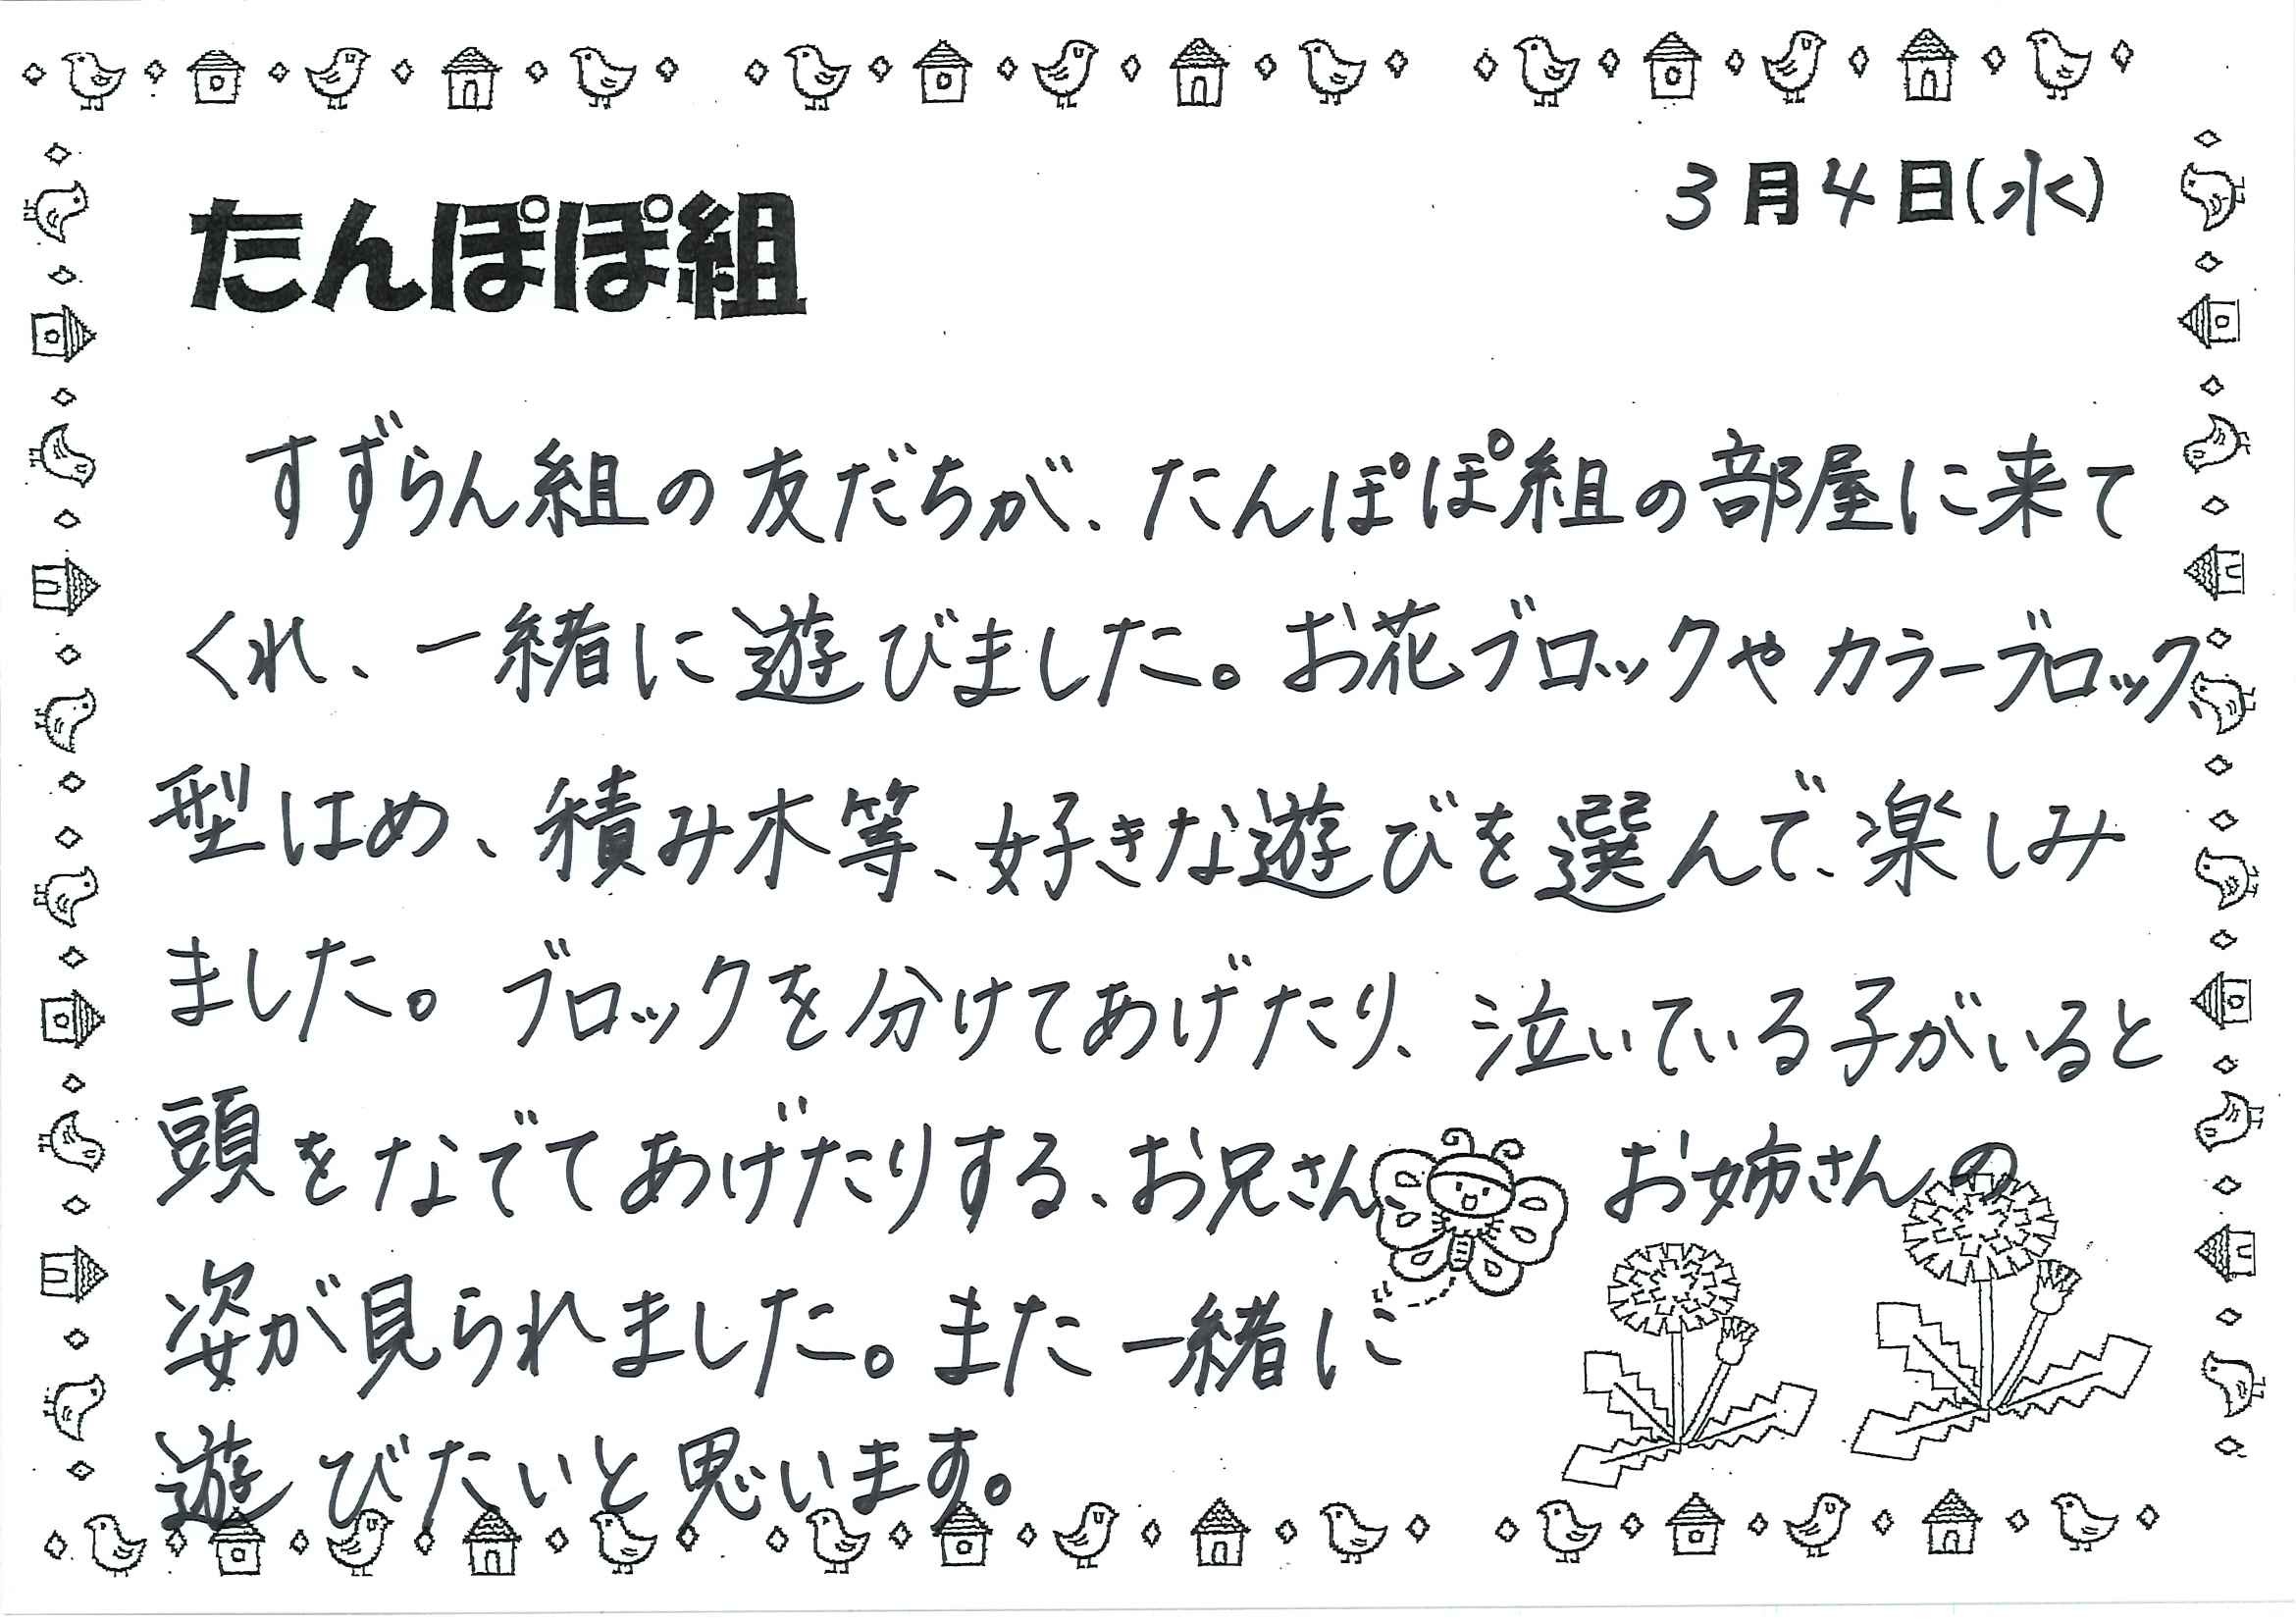 3月4日(水)
たんぽぽ組
すずらん組の友だちが、たんぽぽ組の部屋に来て
くれ、一緒に遊びました。お花ブロックやカラーブロック、
型はめ、積み木等、好きな遊びを選んで、楽しみ
ました。ブロックを分けてあげたり、泣いている子がいると
頭をなでてあげたりする、お兄さん、お姉さんの
姿が見られました。また一緒に
遊びたいと思います。